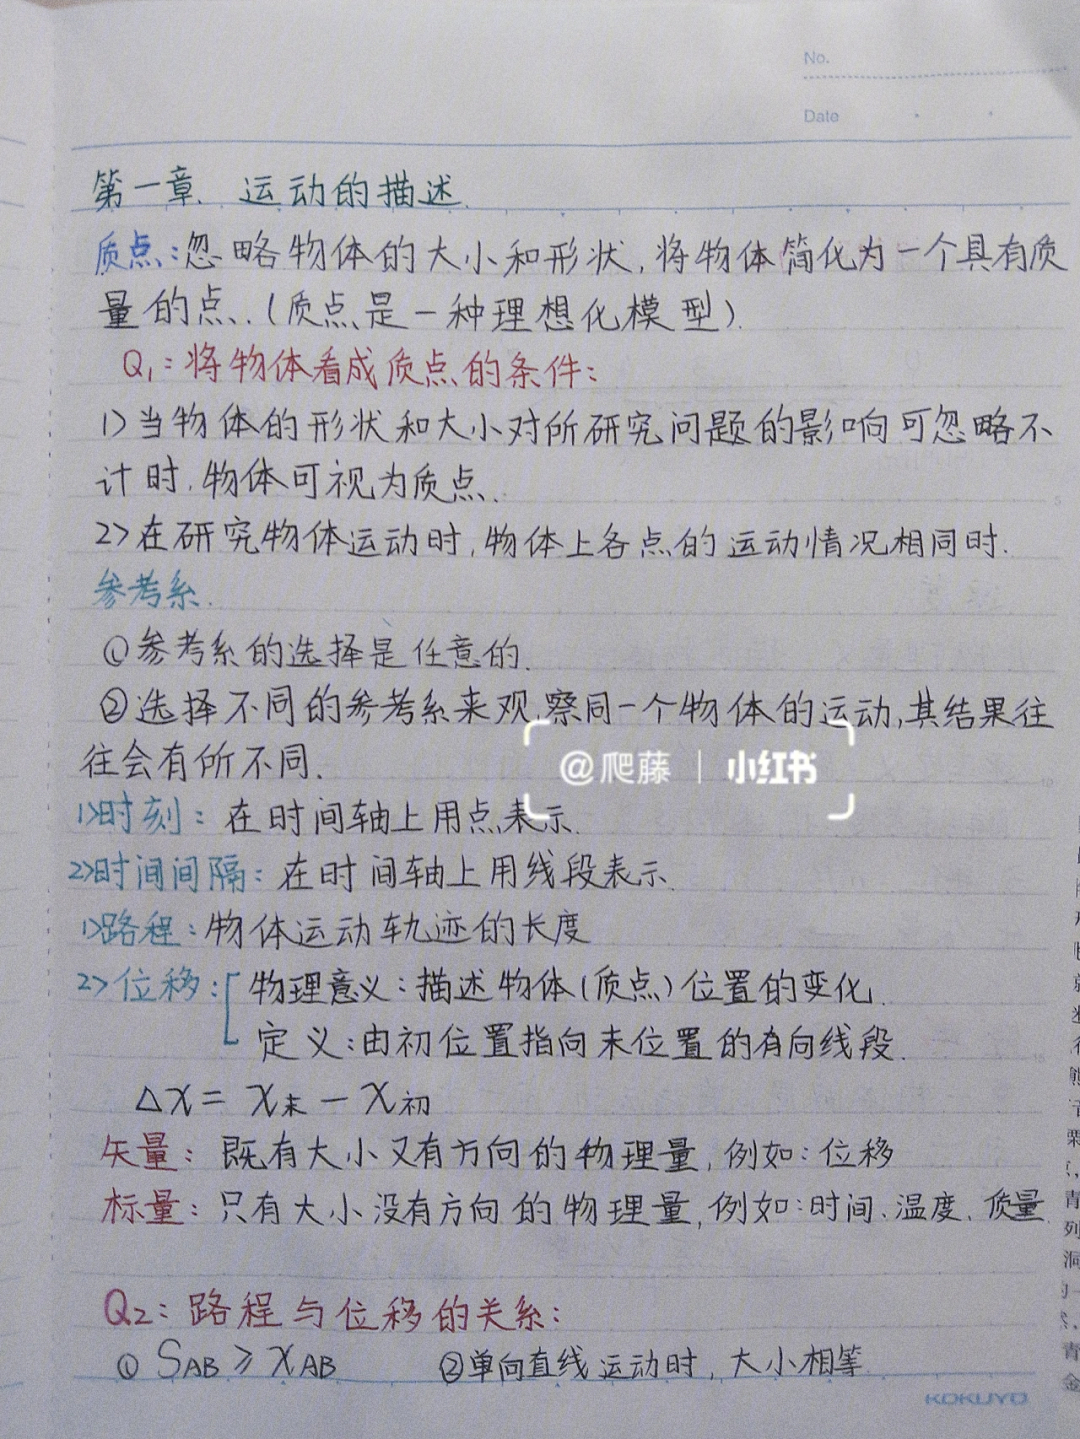 No.
Date
第一章. 运动的描述.
质点:忽略物体的大小和形状,将物体简化为一个具有质
量的点.(质点是一种理想化模型).
Q₁:将物体看成质点的条件:
1>当物体的形状和大小对所研究问题的影响可忽略不
计时.物体可视为质点.
2>在研究物体运动时,物体上各点的运动情况相同时.
参考系.
①参考系的选择是任意的.
②选择不同的参考系来观察同一个物体的运动,其结果往
往会有所不同.
@爬藤 | 小红书
1>时刻:在时间轴上用点表示.
2>时间间隔:在时间轴上用线段表示.
1>路程:物体运动轨迹的长度
2>位移:[物理意义:描述物体(质点)位置的变化.
定义:由初位置指向末位置的有向线段.
△x = x末 - x初
矢量:既有大小又有方向的物理量,例如:位移
标量:只有大小没有方向的物理量,例如:时间、温度、质量.
Q₂:路程与位移的关系:
① SAB ≥ xAB ②单向直线运动时,大小相等.
KOKUYO